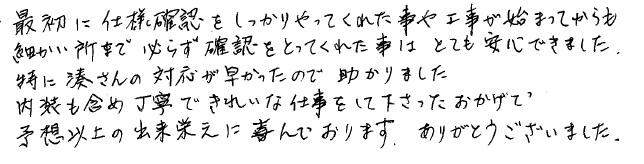 最初に仕様確認をしっかりやってくれた事や工事が始まってからも
細かい所まで必ず確認をとってくれた事はとても安心できました.
特に湊さんの対応が早かったので助かりました
内装も含め丁寧できれいな仕事をして下さったおかげで
予想以上の出来栄えに喜んでおります. ありがとうございました.